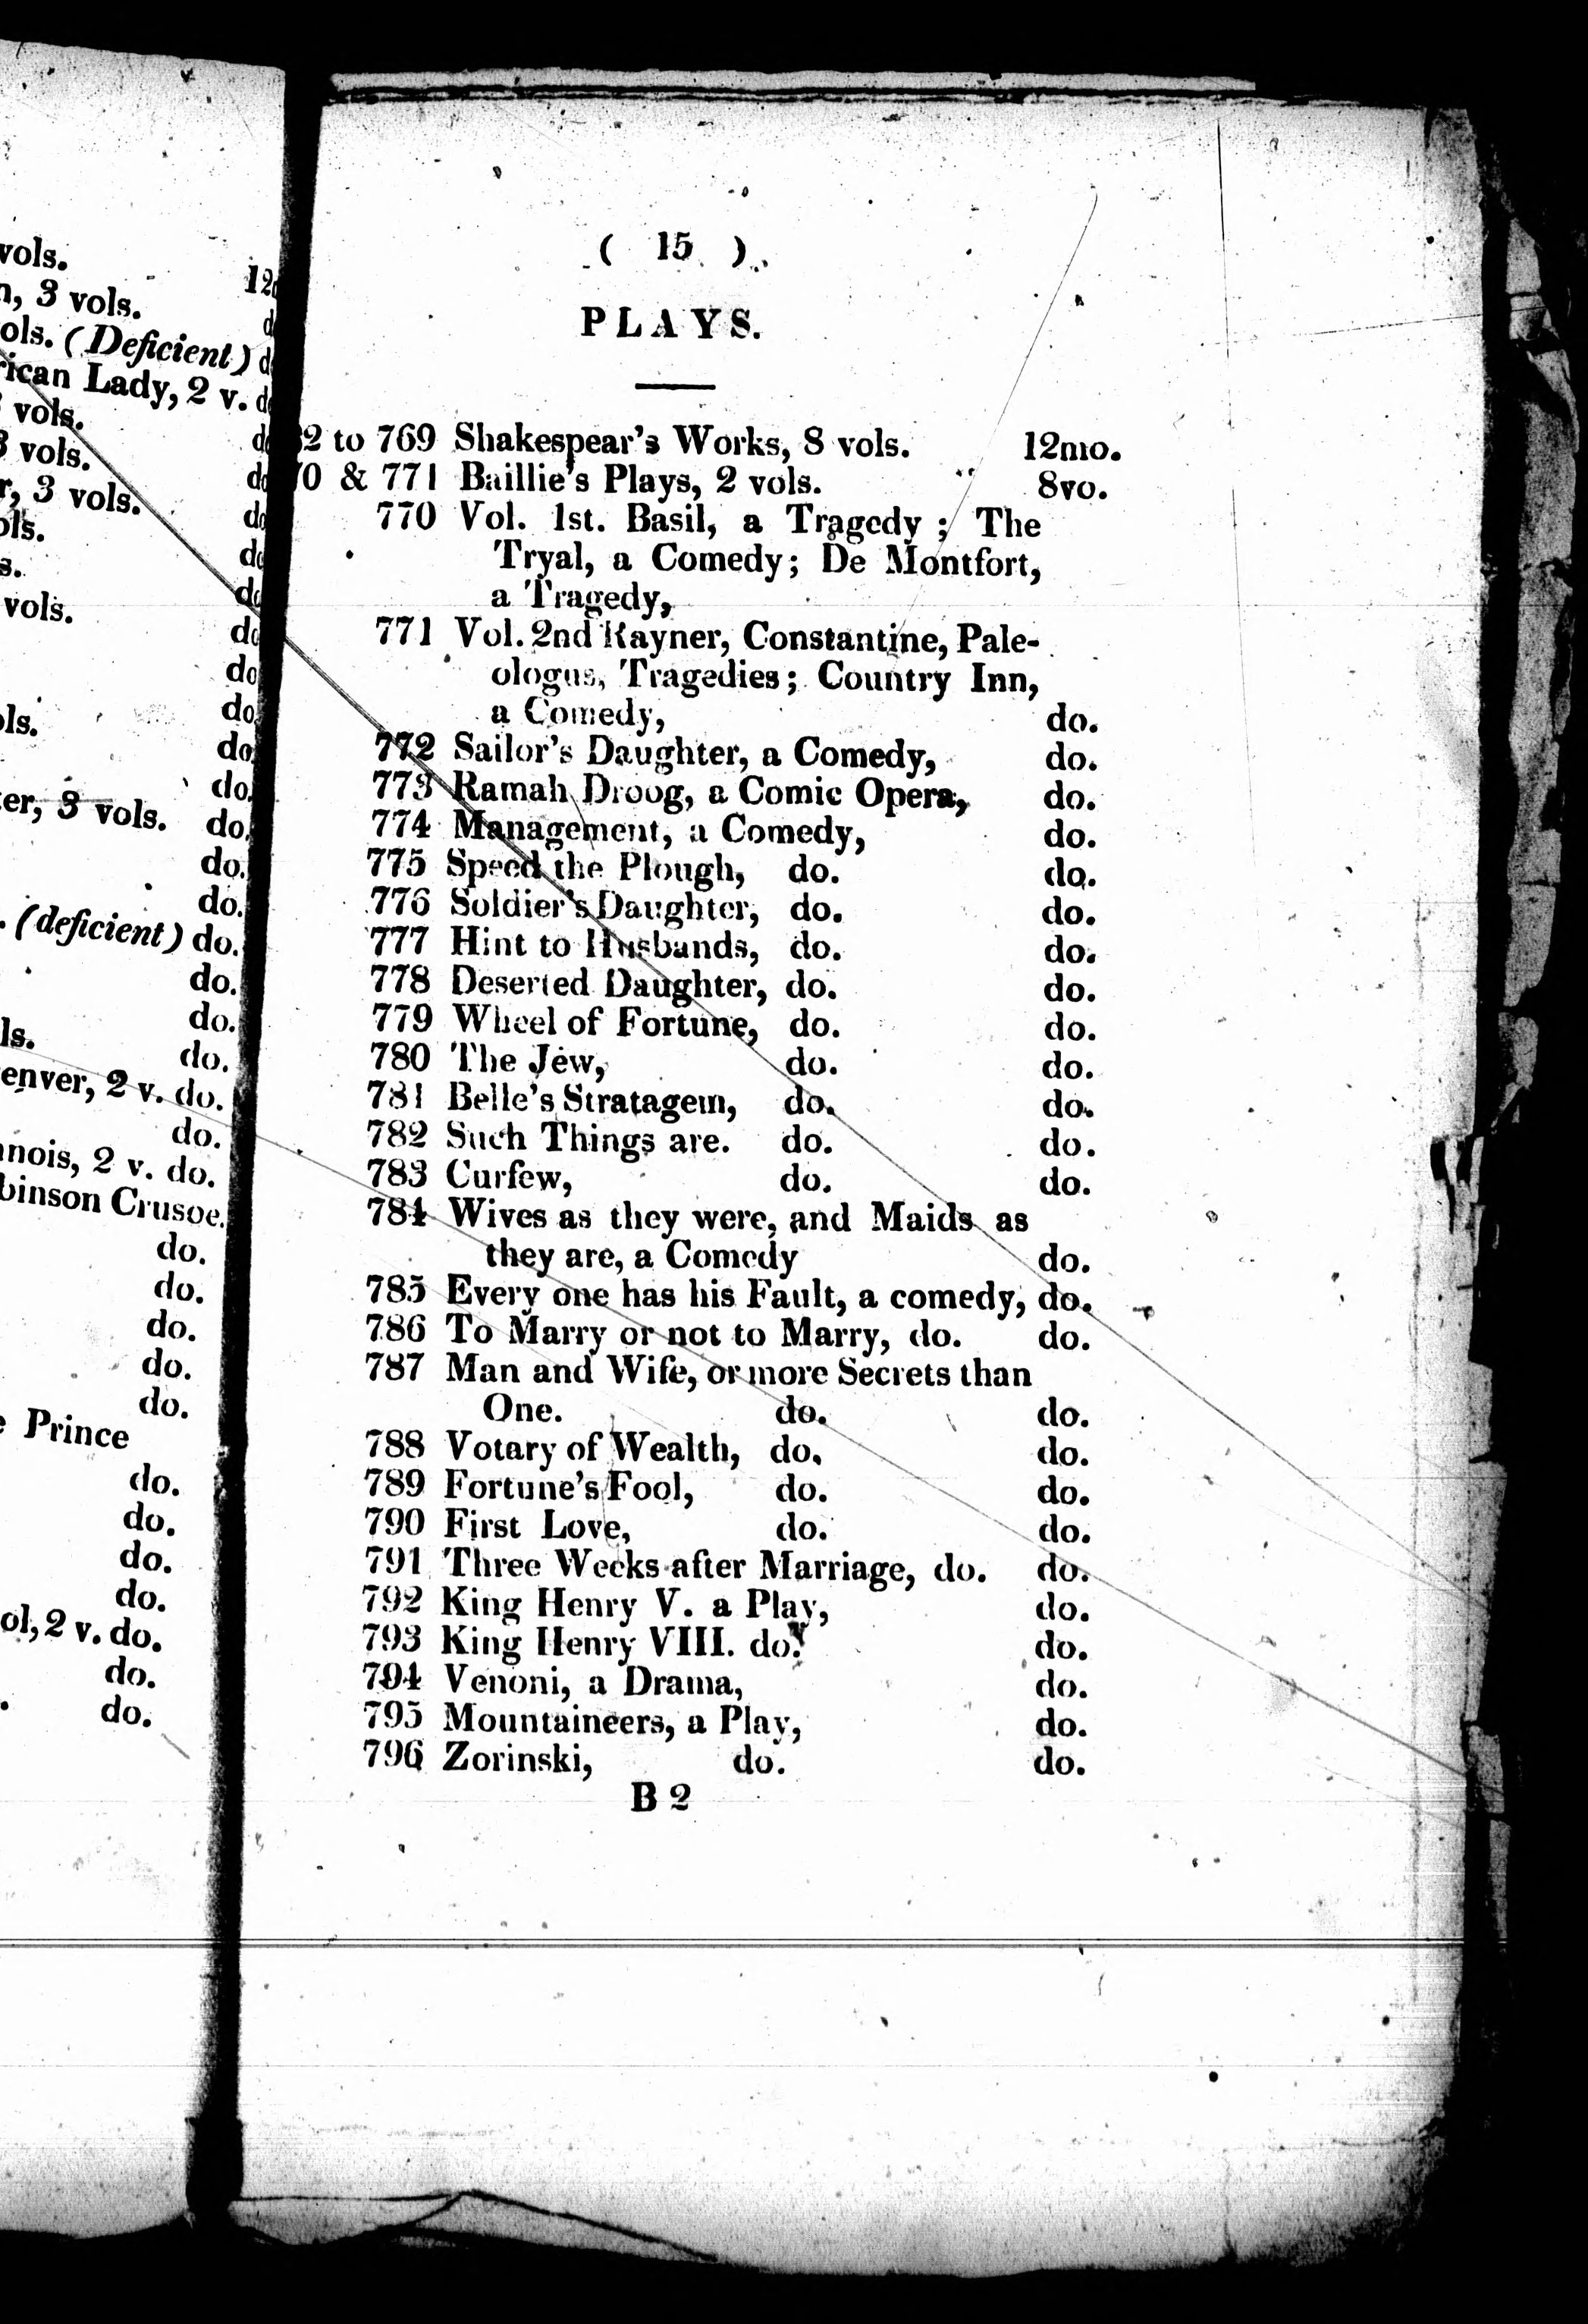 vols.
12
n, 3 vols.
ols. (Deficient) d
rican Lady, 2 v. d
vols. d
3 vols. do
r, 3 vols. do
ols. do
s. do
vols. do
do
do
ls. do
do
do.
er, 3 vols. do.
do.
do.
. (deficient) do.
do.
do.
ls. do.
enver, 2 v. do.
do.
nnois, 2 v. do.
binson Crusoe.
do.
do.
do.
do.
do.
Prince
do.
do.
do.
do.
ol, 2 v. do.
do.
do.
( 15 )
PLAYS.
2 to 769 Shakespear's Works, 8 vols. 12mo.
0 & 771 Baillie's Plays, 2 vols. 8vo.
770 Vol. 1st. Basil, a Tragedy ; The
Tryal, a Comedy; De Montfort,
a Tragedy,
771 Vol. 2nd Rayner, Constantine, Pale-
ologus, Tragedies; Country Inn,
a Comedy, do.
772 Sailor's Daughter, a Comedy, do.
773 Ramah Droog, a Comic Opera, do.
774 Management, a Comedy, do.
775 Speed the Plough, do. do.
776 Soldier's Daughter, do. do.
777 Hint to Husbands, do. do.
778 Deserted Daughter, do. do.
779 Wheel of Fortune, do. do.
780 The Jew, do. do.
781 Belle's Stratagem, do. do.
782 Such Things are. do. do.
783 Curfew, do. do.
784 Wives as they were, and Maids as
they are, a Comedy do.
785 Every one has his Fault, a comedy, do.
786 To Marry or not to Marry, do. do.
787 Man and Wife, or more Secrets than
One. do. do.
788 Votary of Wealth, do. do.
789 Fortune's Fool, do. do.
790 First Love, do. do.
791 Three Weeks after Marriage, do. do.
792 King Henry V. a Play, do.
793 King Henry VIII. do. do.
794 Venoni, a Drama, do.
795 Mountaineers, a Play, do.
796 Zorinski, do. do.
B 2